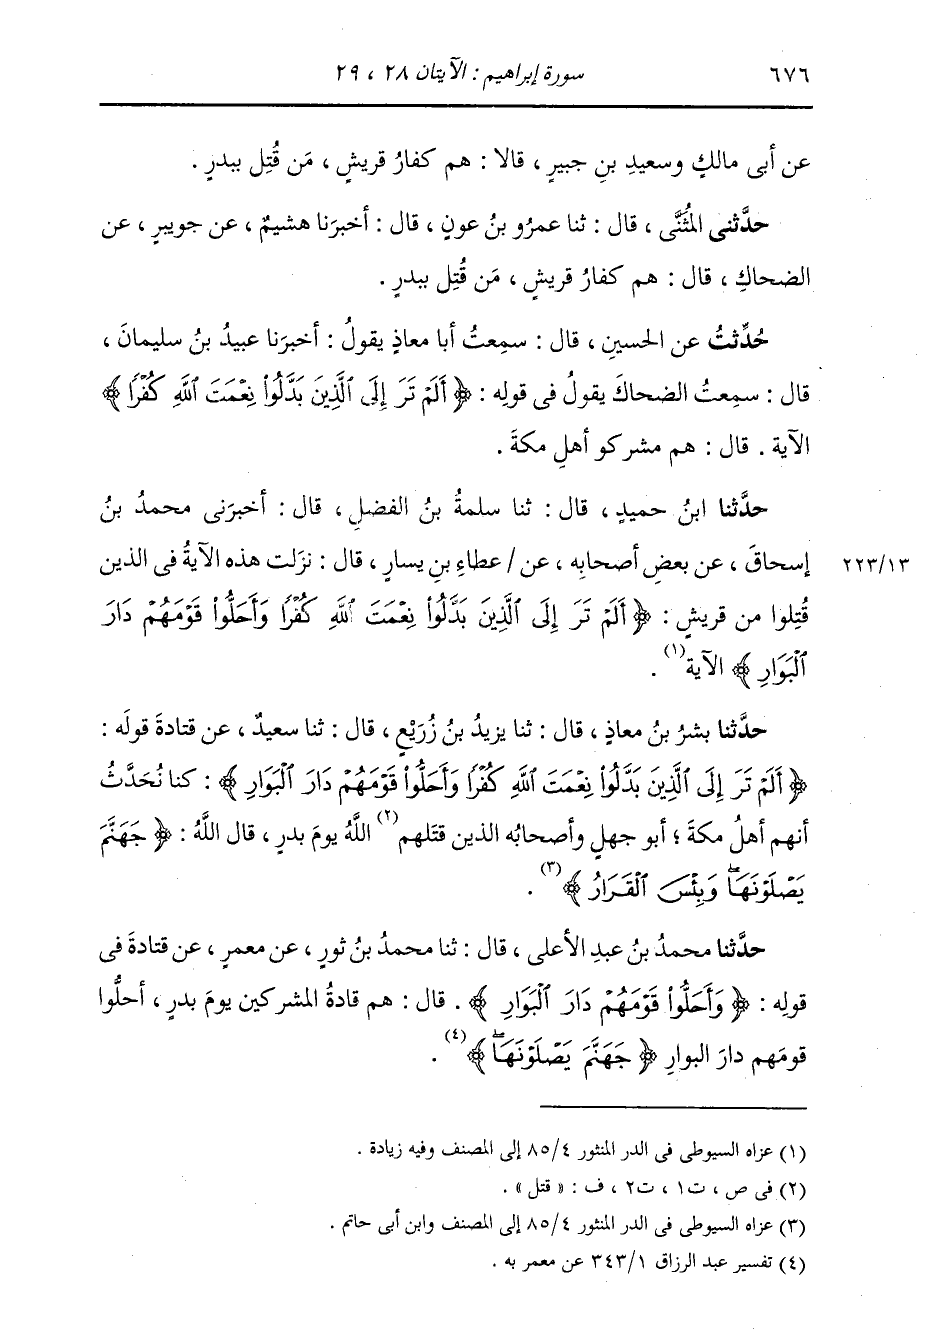 ٦٧٦ سورة إبراهيم : الآيتان ٢٨ ، ٢٩
عن أبى مالكٍ وسعيدِ بنِ جبيرٍ ، قالا : هم كفارُ قريشٍ ، مَن قُتِل ببدرٍ .
حدَّثنى المُثَنَّى ، قال : ثنا عمرُو بنُ عونٍ ، قال : أخبرَنا هشيمٌ ، عن جويبرٍ ، عن
الضحاكِ ، قال : هم كفارُ قريشٍ ، مَن قُتِل ببدرٍ .
حُدِّثتُ عن الحسينِ ، قال : سمِعتُ أبا معاذٍ يقولُ : أخبرَنا عبيدُ بنُ سليمانَ ،
قال : سمِعتُ الضحاكَ يقولُ فى قولِه : ﴿ أَلَمْ تَرَ إِلَى ٱلَّذِينَ بَدَّلُوا۟ نِعْمَتَ ٱللَّهِ كُفْرًا ﴾
الآية . قال : هم مشركو أهلِ مكةَ .
حدَّثنا ابنُ حميدٍ ، قال : ثنا سلمةُ بنُ الفضلِ ، قال : أخبرَنى محمدُ بنُ
إسحاقَ ، عن بعضِ أصحابِه ، عن / عطاءِ بنِ يسارٍ ، قال : نزَلت هذه الآيةُ فى الذين ٢٢٣/١٣
قُتِلوا من قريشٍ : ﴿ أَلَمْ تَرَ إِلَى ٱلَّذِينَ بَدَّلُوا۟ نِعْمَتَ ٱللَّهِ كُفْرًا وَأَحَلُّوا۟ قَوْمَهُمْ دَارَ
ٱلْبَوَارِ ﴾ الآية(١) .
حدَّثنا بشرُ بنُ معاذٍ ، قال : ثنا يزيدُ بنُ زُرَيْعٍ ، قال : ثنا سعيدٌ ، عن قتادةَ قولَه :
﴿ أَلَمْ تَرَ إِلَى ٱلَّذِينَ بَدَّلُوا۟ نِعْمَتَ ٱللَّهِ كُفْرًا وَأَحَلُّوا۟ قَوْمَهُمْ دَارَ ٱلْبَوَارِ ﴾ : كنا نُحَدَّثُ
أنهم أهلُ مكةَ ؛ أبو جهلٍ وأصحابُه الذين قتَلهم(٢) اللَّهُ يومَ بدرٍ ، قال اللَّهُ : ﴿ جَهَنَّمَ
يَصْلَوْنَهَا ۖ وَبِئْسَ ٱلْقَرَارُ ﴾(٣) .
حدَّثنا محمدُ بنُ عبدِ الأعلى ، قال : ثنا محمدُ بنُ ثورٍ ، عن معمرٍ ، عن قتادةَ فى
قولِه : ﴿ وَأَحَلُّوا۟ قَوْمَهُمْ دَارَ ٱلْبَوَارِ ﴾ . قال : هم قادةُ المشركين يومَ بدرٍ ، أحلُّوا
قومَهم دارَ البوارِ ﴿ جَهَنَّمَ يَصْلَوْنَهَا ۖ ﴾(٤) .
(١) عزاه السيوطى فى الدر المنثور ٨٥/٤ إلى المصنف وفيه زيادة .
(٢) فى ص ، ت١ ، ت٢ ، ف : « قتل » .
(٣) عزاه السيوطى فى الدر المنثور ٨٥/٤ إلى المصنف وابن أبى حاتم .
(٤) تفسير عبد الرزاق ٣٤٣/١ عن معمر به .